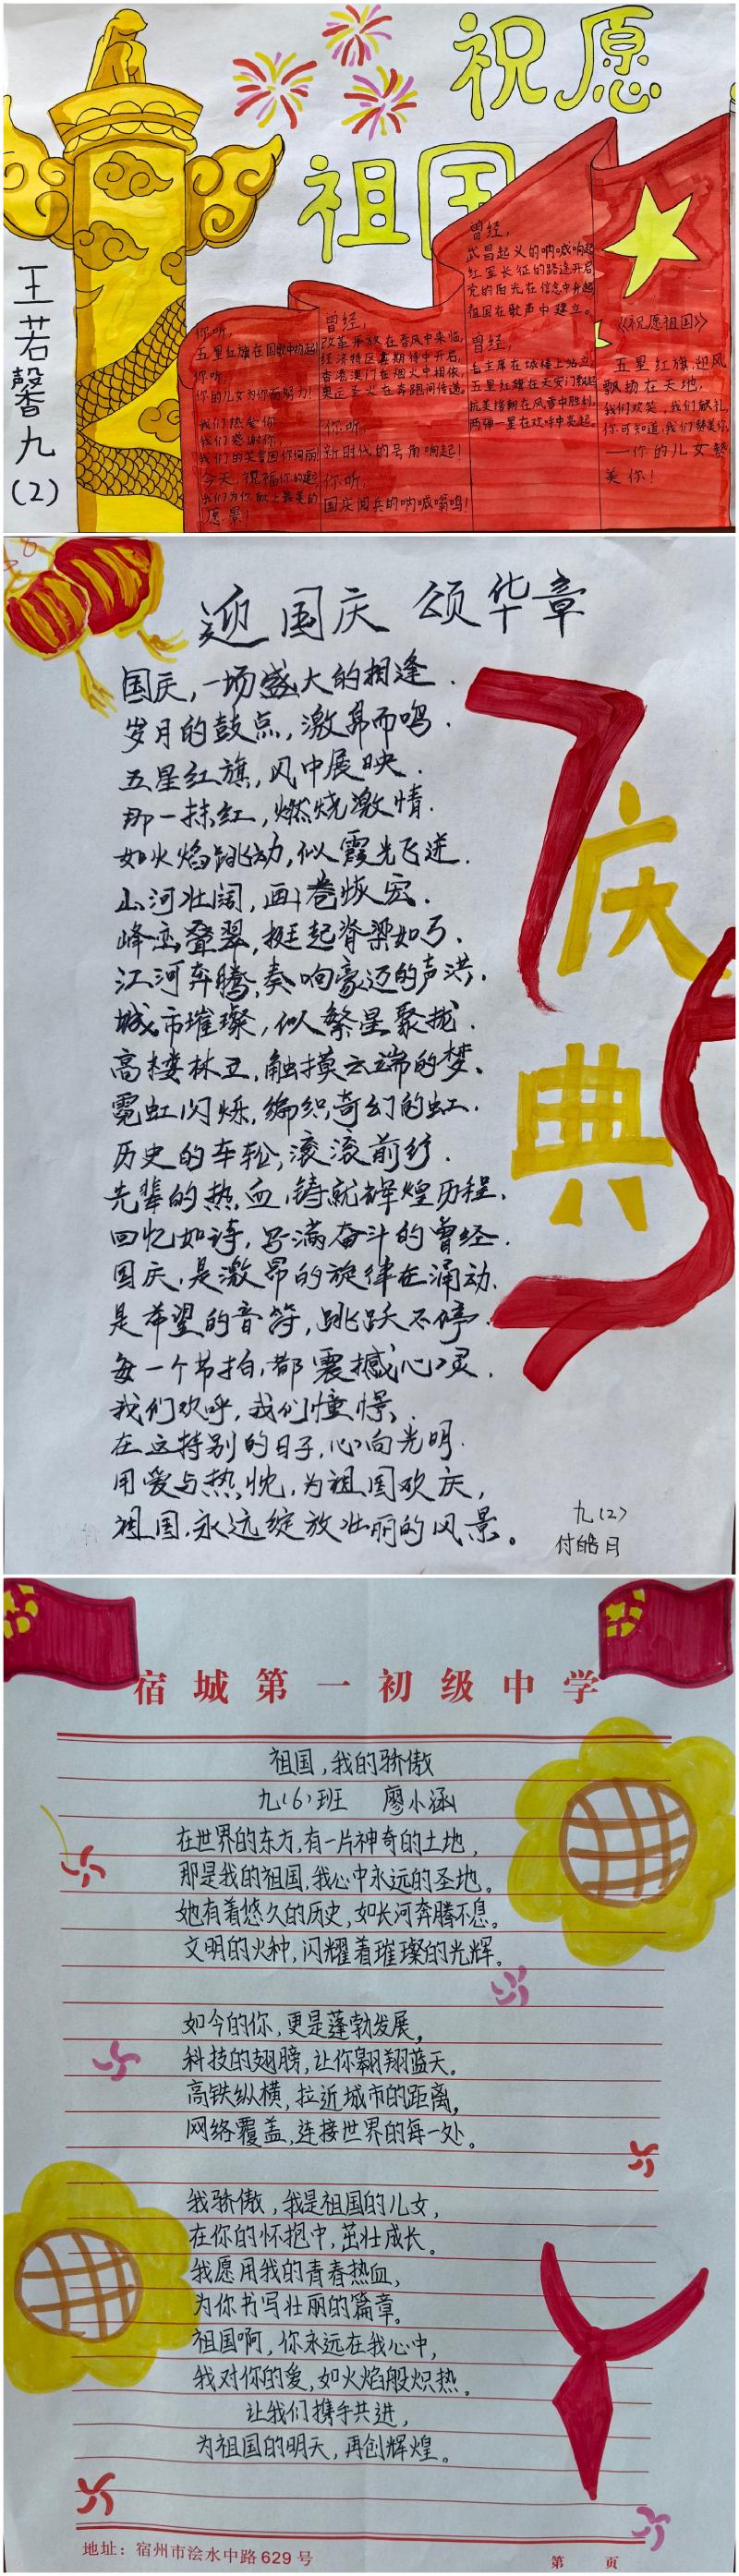 祝愿
祖国
王若馨九(2)
《祝愿祖国》
五星红旗迎风
飘扬在天地,
我们欢笑,我们献礼,
你可知道,我们赞美你,
——你的儿女赞
美你!
曾经,
武昌起义的呐喊响起
红军长征的路途开启
党的阳光在信念中升起
祖国在歌声中建立。
曾经,
毛主席在城楼上站立
五星红旗在天安门飘起
抗美援朝在风雪中胜利,
两弹一星在欢呼中亮起。
曾经,
改革开放在春风中来临,
经济特区在期待中开启,
香港澳门在烟火中相依,
奥运圣火在奔跑间传递,
你听,
新时代的号角响起!
你听,
国庆阅兵的呐喊嗡鸣!
你听,
五星红旗在国歌中扬起
你听,
你的儿女为你而努力!
我们热爱你,
我们感谢你,
我们的笑容因你绚丽
今天,祝福你的
我们为你献上最美的
愿景!
迎国庆 颂华章
国庆,一场盛大的相逢.
岁月的鼓点,激昂而鸣.
五星红旗,风中展映.
那一抹红,燃烧激情.
如火焰跳动,似霞光飞迸.
山河壮阔,画卷恢宏.
峰峦叠翠,挺起脊梁如弓.
江河奔腾,奏响豪迈的声洪.
城市璀璨,似繁星聚拢.
高楼林立,触摸云端的梦.
霓虹闪烁,编织奇幻的虹.
历史的车轮,滚滚前行.
先辈的热血,铸就辉煌历程.
回忆如诗,写满奋斗的曾经.
国庆,是激昂的旋律在涌动.
是希望的音符,跳跃不停.
每一个节拍,都震撼心灵.
我们欢呼,我们憧憬.
在这特别的日子,心向光明.
用爱与热忱,为祖国欢庆,
祖国,永远绽放壮丽的风景。
75
庆
典
九(2)
付皓月
宿城第一初级中学
祖国,我的骄傲
九(6)班 廖小涵
在世界的东方,有一片神奇的土地,
那是我的祖国,我心中永远的圣地。
她有着悠久的历史,如长河奔腾不息。
文明的火种,闪耀着璀璨的光辉。
如今的你,更是蓬勃发展,
科技的翅膀,让你翱翔蓝天。
高铁纵横,拉近城市的距离,
网络覆盖,连接世界的每一处。
我骄傲,我是祖国的儿女,
在你的怀抱中,茁壮成长。
我愿用我的青春热血,
为你书写壮丽的篇章。
祖国啊,你永远在我心中,
我对你的爱,如火焰般炽热。
让我们携手共进,
为祖国的明天,再创辉煌。
地址:宿州市浍水中路629号
第 页